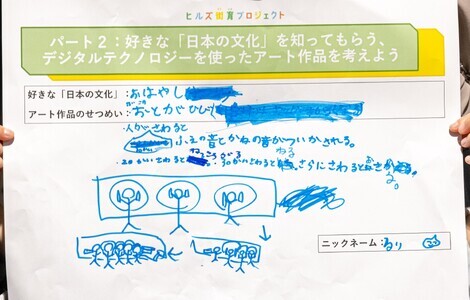 ヒルズ街育プロジェクト
パート2：好きな「日本の文化」を知ってもらう、
デジタルテクノロジーを使ったアート作品を考えよう
好きな「日本の文化」：おはやし
アート作品のせつめい：おとがひびく
・人がさわると
ふえの音とかねの音がついかされる。
・20かいさわると ねっころがる ・30かいさわるとねる さらにさわるとおきる。
ニックネーム：るり